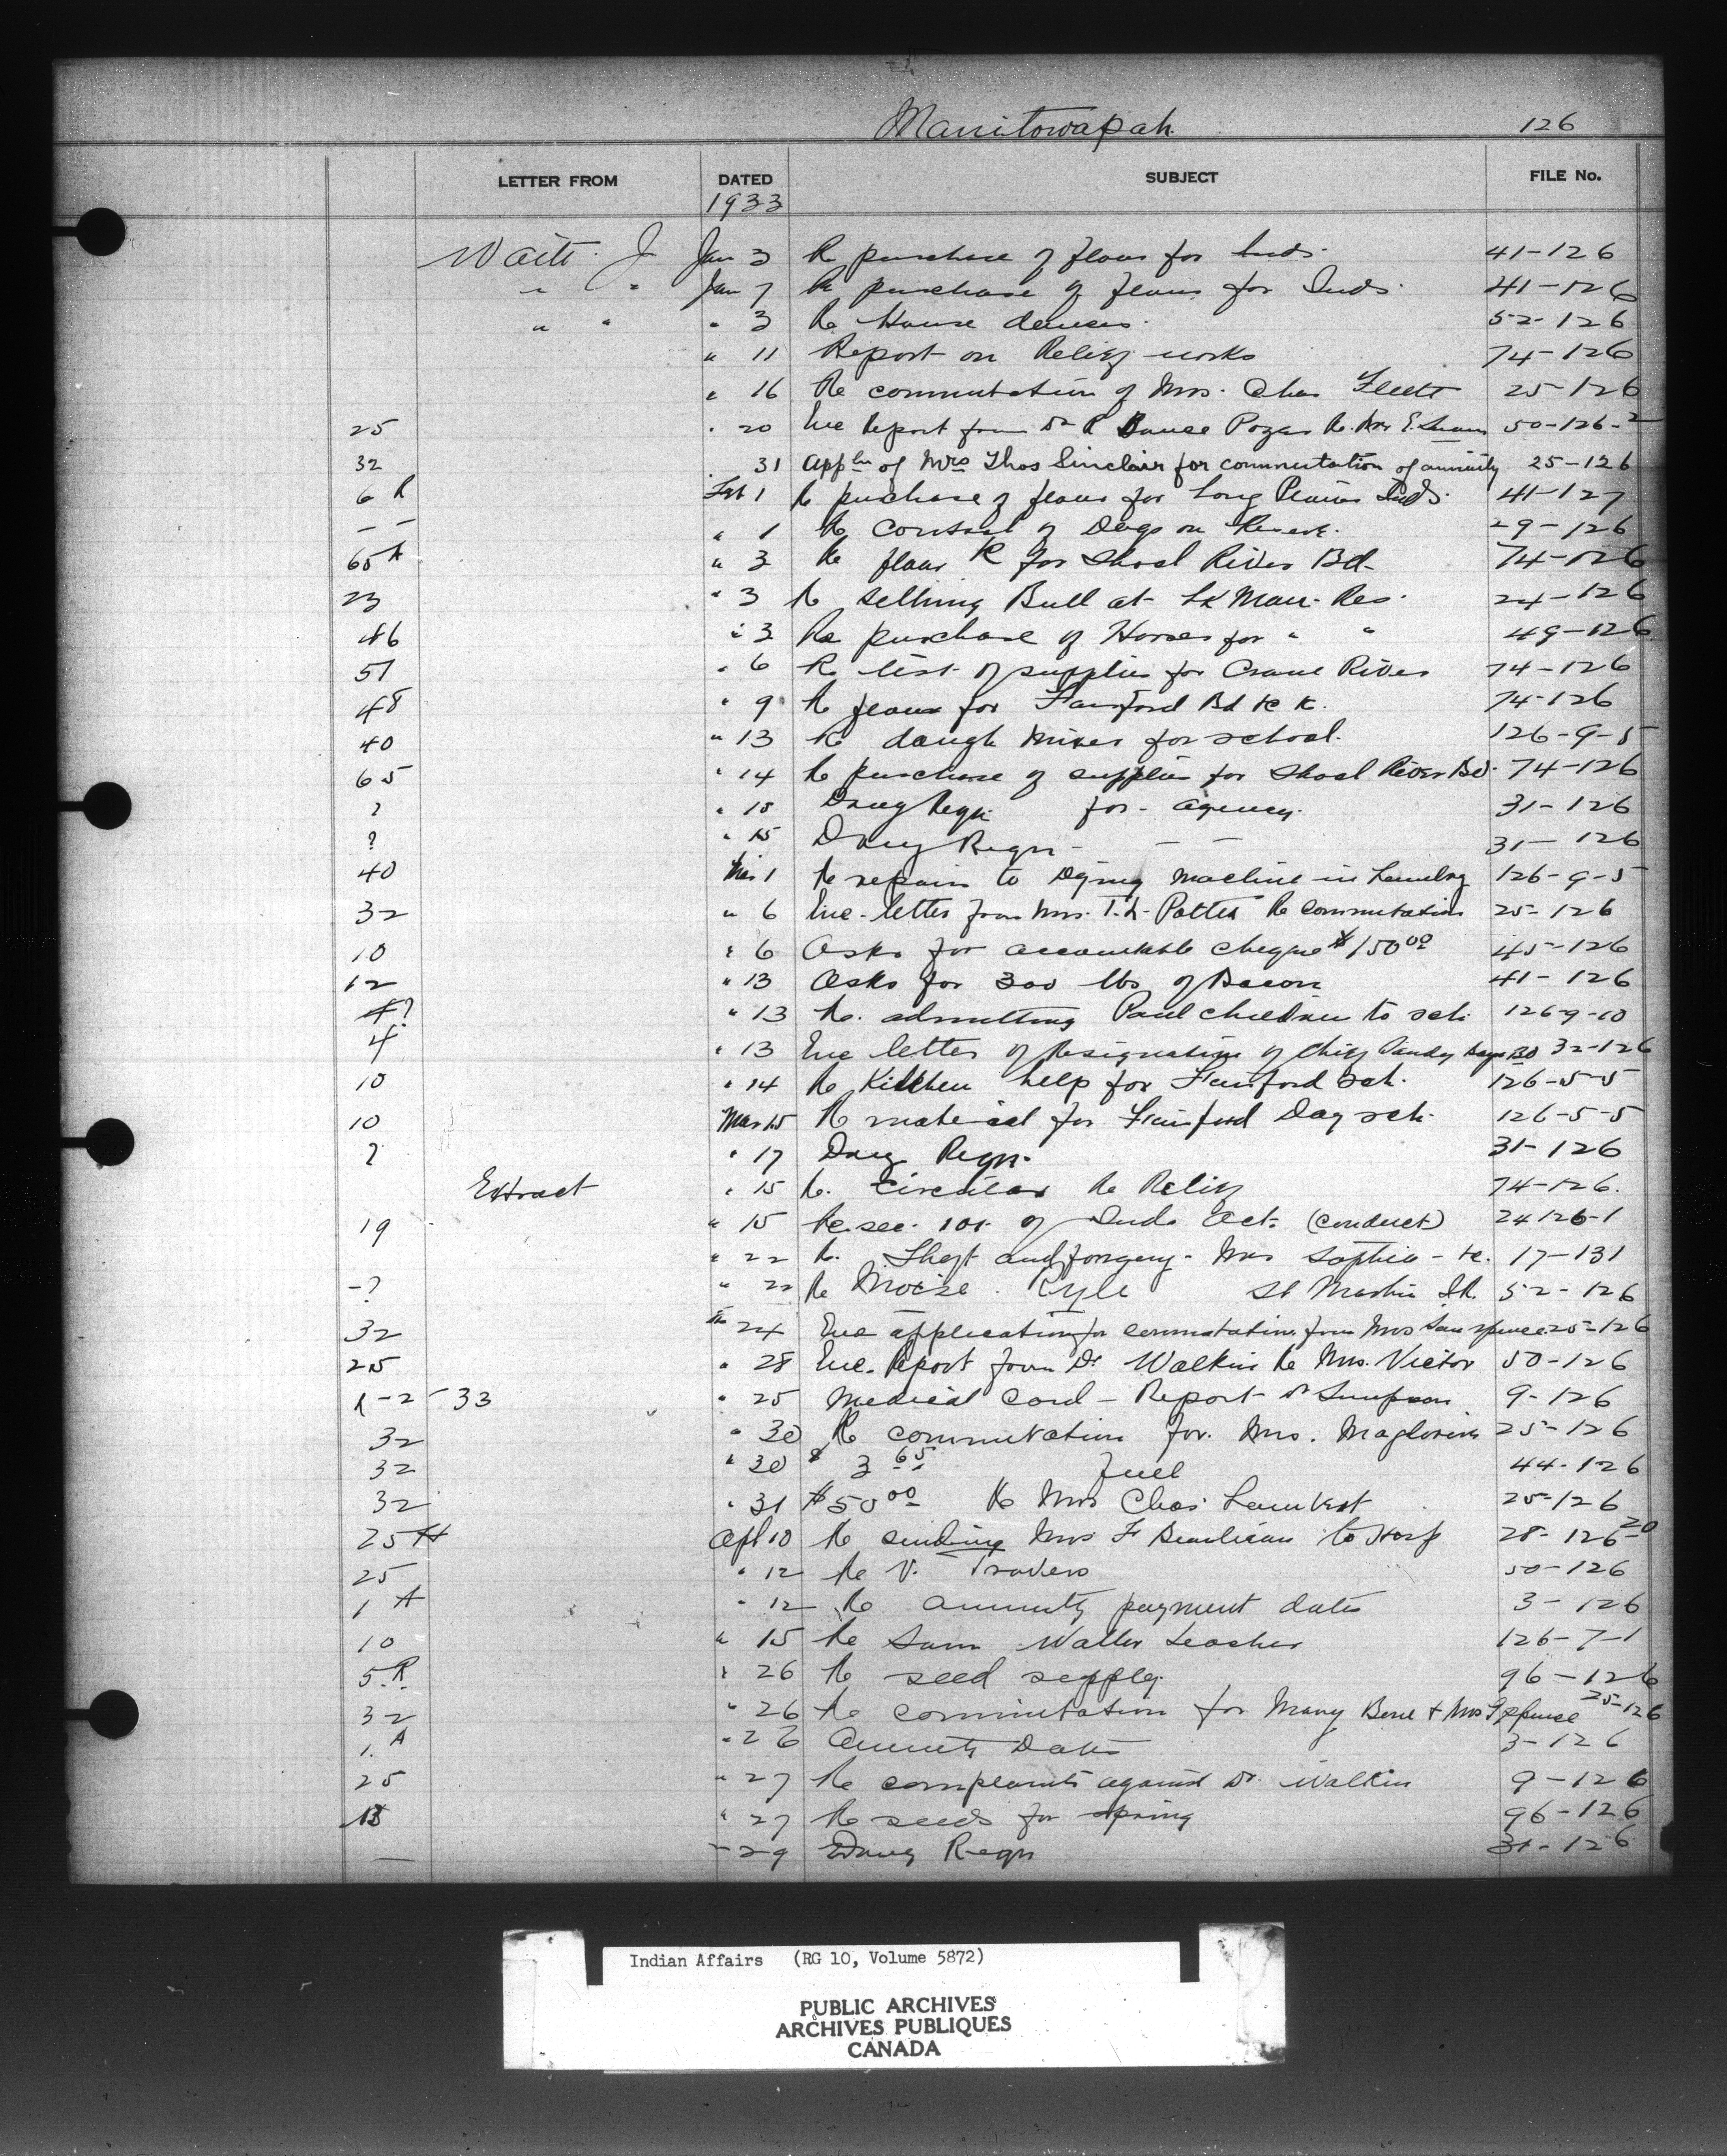 Manitowapah 126
LETTER FROM DATED SUBJECT FILE No.
1933
Waite J Jan 3 Re purchase of flour for Inds. 41-126
" " Jan 7 Re purchase of flour for Inds. 41-126
" " " 3 Re House 52-126
" 11 Report on Relief works 74-126
" 16 Re commutation of Mrs. Chas Flett 25-126
25 " 20 Enc Report from Dr R Re Mrs E. 50-126-2
32 31 Appln of Mrs Thos Sinclair for commutation of annuity 25-126
6 R Feb 1 Re purchase of flour for Long Plains Inds. 41-127
– – " 1 Re control of Dogs on Reserve. 29-126
65 A " 3 Re flour &c for Shoal River Bd- 74-126
23 " 3 Re selling Bull at Lk Man. Res. 24-126
46 " 3 Re purchase of Horses for " " 49-126
51 " 6 Re list of supplies for Crane River 74-126
48 " 9 Re flour for Fairford Bd &c &c. 74-126
40 " 13 Re dough mixer for school. 126-9-5
65 " 14 Re purchase of supplies for Shoal River Bd. 74-126
? " 15 Drug Reqn for agency. 31-126
? " 15 Drug Reqn - — — 31-126
40 Mar 1 Re repairs to Drying machine in Laundry 126-9-5
32 " 6 Enc. letter from Mrs. Pottes Re commutation 25-126
10 " 6 Asks for accountable cheque $150 00 45-126
12 " 13 Asks for 300 lbs of Bacon 41-126
4? " 13 Re. admitting Paul children to sch. 126-9-10
4 " 13 Enc letter of Resignation of Chief Sandy Bay Bd 32-126
10 " 14 Re Kitchen help for Fairford sch. 126-5-5
10 Mar 15 Re material for Fairford Day sch. 126-5-5
? " 17 Drug Reqn. 31-126
Extract " 15 Re. Circular Re Relief 74-126.
19 " 15 Re. sec. 101 of Inds Act. (conduct) 24 126-1
" 22 Re. Theft and forgery - Mrs Sophia - &c. 17-131
-? " 22 Re Moise Kyle St Martin 52-126
32 " 24 Enc application for commutation from Mrs Sam Spence 25-126
25 " 28 Enc. Report from Dr Walkin Re Mrs. Victor 50-126
R-2-33 " 25 Medical Card - Report Dr Simpson 9-126
32 " 30 Re commutation for. Mrs. Magloire 25-126
32 " 30 $ 3 65 fuel 44-126
32 " 31 $50 00 Re Mrs Chas. Lambert 25-126
25 H Apl 10 Re sending Mrs F Beaulieau to Hosp 28-126-20
25 " 12 Re V. Travers 50-126
1 A " 12 Re annuity payment dates 3-126
10 " 15 Re Sam Waller teacher 126-7-1
5. R. " 26 Re seed supply. 96-126
32 " 26 Re commutation for Mary Bone + Mrs Spence 25-126
1. A " 26 Annuity Dates 3-126
25 " 27 Re complaints against Dr. Walkin 9-126
" 27 Re seeds for spring 96-126
— " 29 Drug Reqn 31-126
Indian Affairs (RG 10, Volume 5872)
PUBLIC ARCHIVES
ARCHIVES PUBLIQUES
CANADA